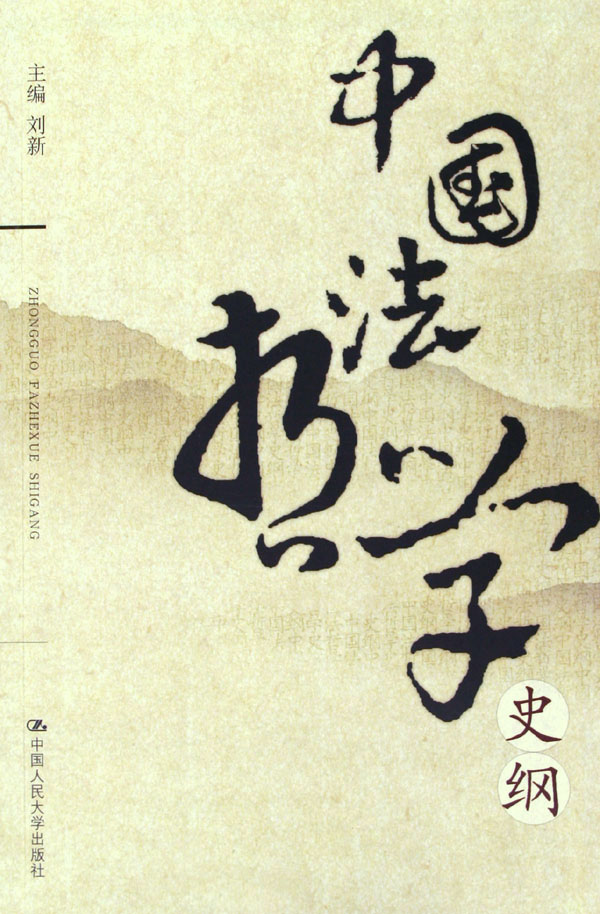 主编 刘新
ZHONGGUO FAZHEXUE SHIGANG
中国人民大学出版社
中国法哲学
史纲